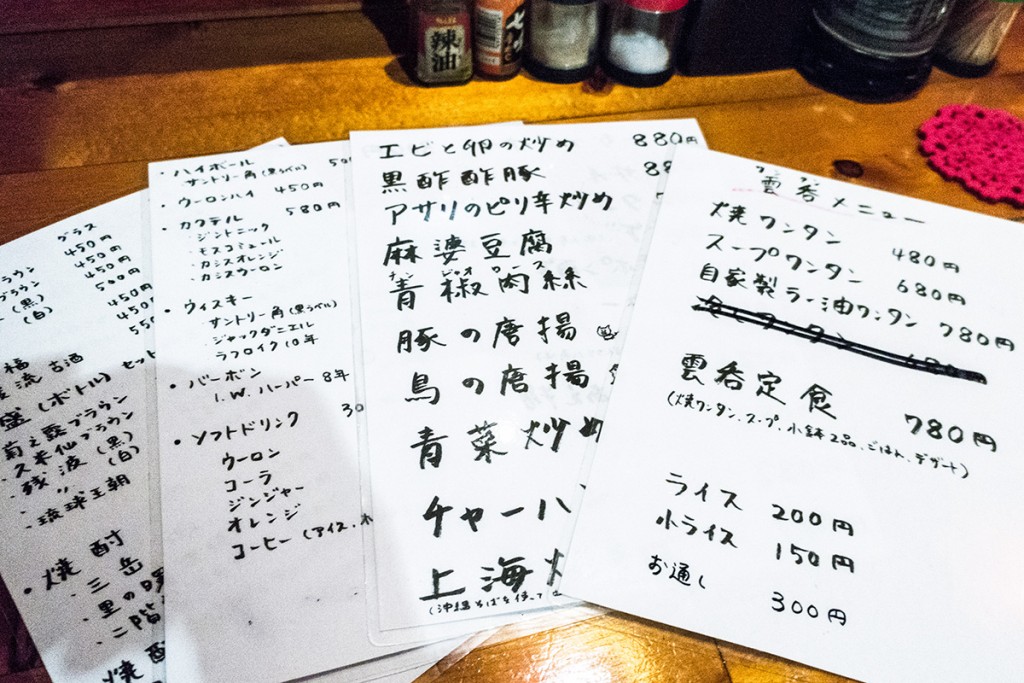 辣油
グラス
ラウン 450円
ブラウン 450円
(黒) 450円
(白) 500円
450円
550
福
古酒
盛(ボトル)セット
菊之露ブラウン
・久米仙ブラウン
・残波(黒)
・〃(白)
・琉球王朝
・焼酎
・三岳
・里の曙
・二階
・ハイボール 500
サントリー角(黒ラベル)
・ウーロンハイ 450円
・カクテル 580円
・ジントニック
・モスコミュール
・カシスオレンジ
・カシスウーロン
・ウィスキー
・サントリー角(黒ラベル)
・ジャックダニエル
ラフロイク10年
・バーボン
I.W.ハーパー8年
・ソフトドリンク 30
ウーロン
コーラ
ジンジャー
オレンジ
コーヒー(アイス、ホ
エビと卵の炒め 880円
黒酢酢豚 88
アサリのピリ辛炒め
麻婆豆腐
チンジャオロース
青椒肉絲
豚の唐揚
鳥の唐揚
青菜炒め
チャーハ
上海
(沖縄そばを使って
ワンタン
雲呑メニュー
焼ワンタン 480円
スープワンタン 680円
自家製ラー油ワンタン 780円
雲呑定食 780円
(焼ワンタン、スープ、小鉢2品、ごはん、デザート)
ライス 200円
小ライス 150円
お通し 300円